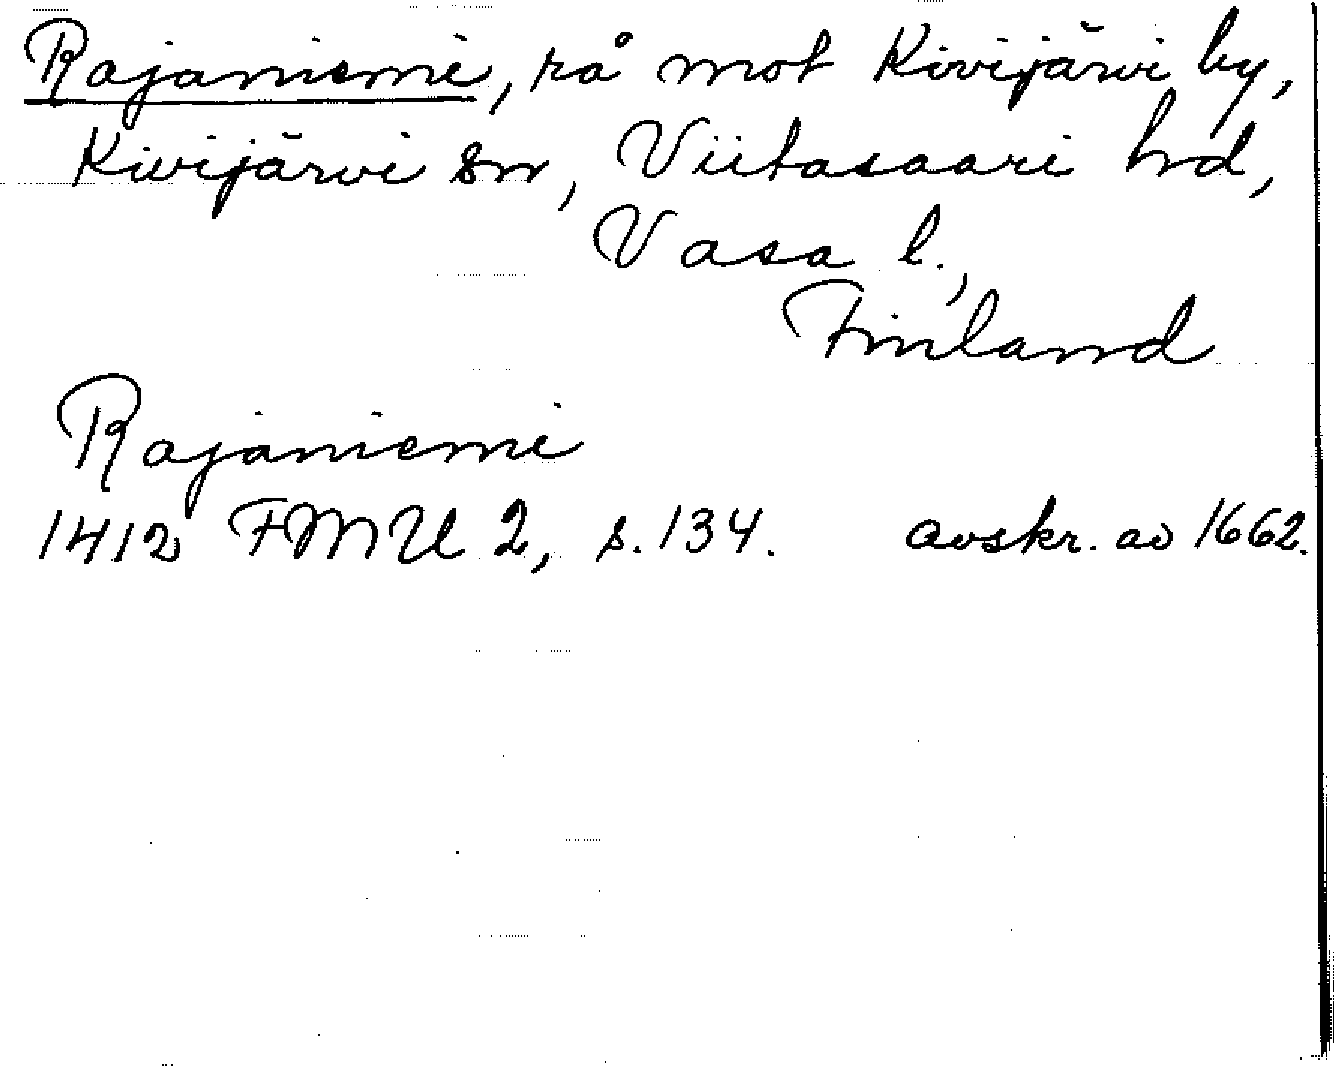 Rajaniemi, rå mot Kivijärvi by,
Kivijärvi sn, Viitasaari hd,
Vasa l.,
Finland
Rajaniemi
1412 FMU 2, s. 134. avskr. av 1662.